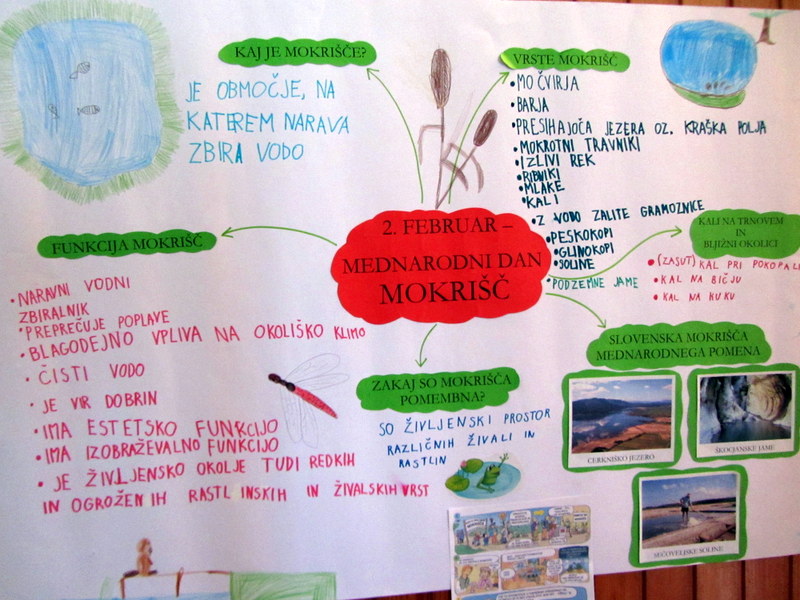 KAJ JE MOKRIŠČE?
JE OBMOČJE, NA
KATEREM NARAVA
ZBIRA VODO
VRSTE MOKRIŠČ
•MOČVIRJA
•BARJA
•PRESIHAJOČA JEZERA OZ. KRAŠKA POLJA
•MOKROTNI TRAVNIKI
•IZLIVI REK
•RIBNIKI
•MLAKE
•KALI
•Z VODO ZALITE GRAMOZNICE
•PESKOKOPI
•GLINOKOPI
•SOLINE
•PODZEMNE JAME
2. FEBRUAR –
MEDNARODNI DAN
MOKRIŠČ
KALI NA TRNOVEM
IN
BLJIŽNI OKOLICI
•(ZASUT) KAL PRI
•KAL NA BIČJU
•KAL NA KUKU
FUNKCIJA MOKRIŠČ
•NARAVNI VODNI
ZBIRALNIK
•PREPREČUJE POPLAVE
•BLAGODEJNO VPLIVA NA OKOLIŠKO KLIMO
•ČISTI VODO
•JE VIR DOBRIN
•IMA ESTETSKO FUNKCIJO
•IMA IZOBRAŽEVALNO FUNKCIJO
•JE ŽIVLJENSKO OKOLJE TUDI REDKIH
IN OGROŽENIH RASTLINSKIH IN ŽIVALSKIH VRST
ZAKAJ SO MOKRIŠČA
POMEMBNA?
SO ŽIVLJENJSKI PROSTOR
RAZLIČNIH ŽIVALI IN
RASTLIN
SLOVENSKA MOKRIŠČA
MEDNARODNEGA POMENA
CERKNIŠKO JEZERO
ŠKOCJANSKE JAME
SEČOVELJSKE SOLINE